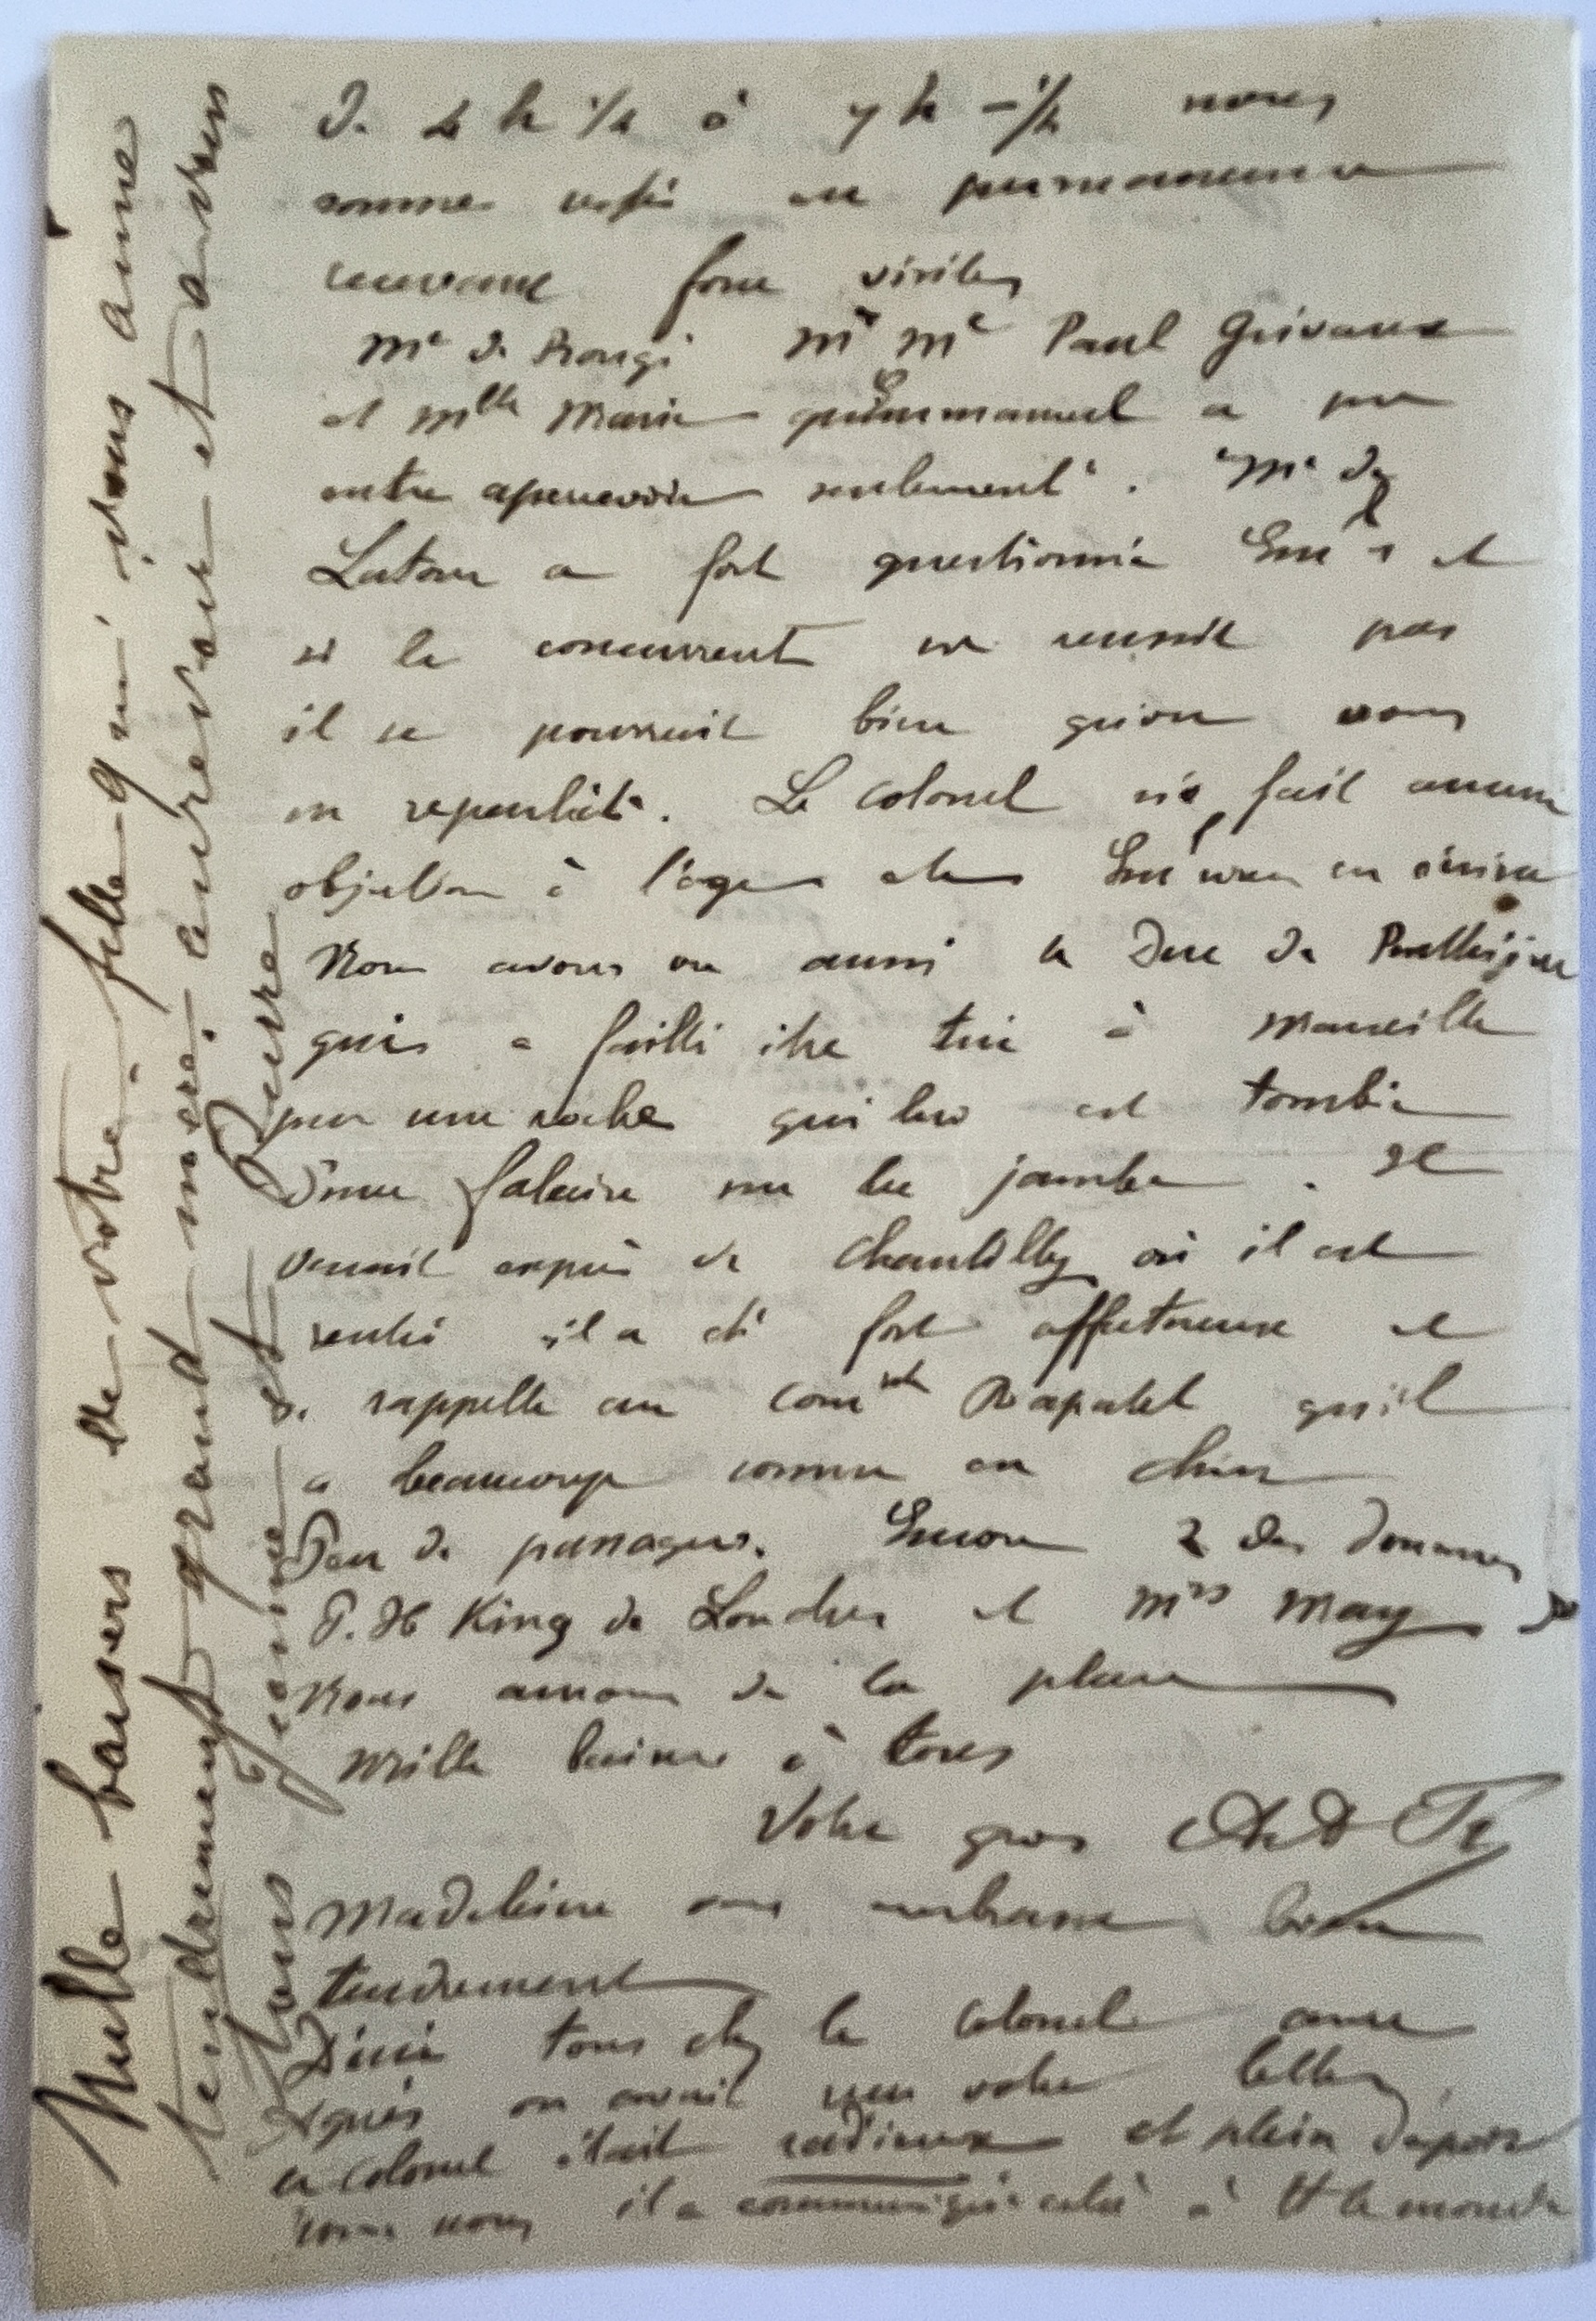 De 4 h 1/2 à 7 h 1/2 nous
sommes restés en permanence
recevant force visites
Me de Rougé Mr Me Paul Grivaux
et Mlle Marie qu'Emmanuel a pu
entre apercevoir seulement. Me de
Latour a fort questionné Eml et
si le concurrent ne reussit pas
il se pourrait bien qu'on vous
en reparlât. Le colonel ne fait aucune
objection à l'age et Eml
Nous avons vu aussi le Duc de
qui a failli être tué à Marseille
par une roche qui lui est tombée
d'une falaise sur la jambe. Il
venait exprès de Chantilly où il est
rentré il a été fort affectueux et
se rappelle au comdt Rapatel qu'il
a beaucoup connu en chine
Peu de passages. Encore 2 des Douanes
T. H King de Londres et Mrs May
Nous avons de la pluie
Mille baisers à tous
Votre gros
Madeleine vous embrasse bien
tendrement
Diné tous chez le colonel
Après on avait reçu votre lettre,
le colonel était radieux et plein d'espoir
comme nous il a communiqué cela à tt le monde
Mille baisers de votre fille qui vous aime
tendrement grand mère, aurevoir et à vous
tous Germaine et Pierre